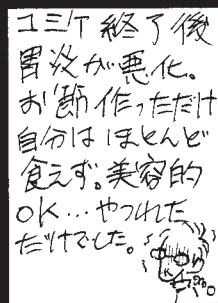 コミケ終了後
胃炎が悪化。
お節作っただけ
自分はほとんど
食えず。美容的
OK…やつれた
だけでした。